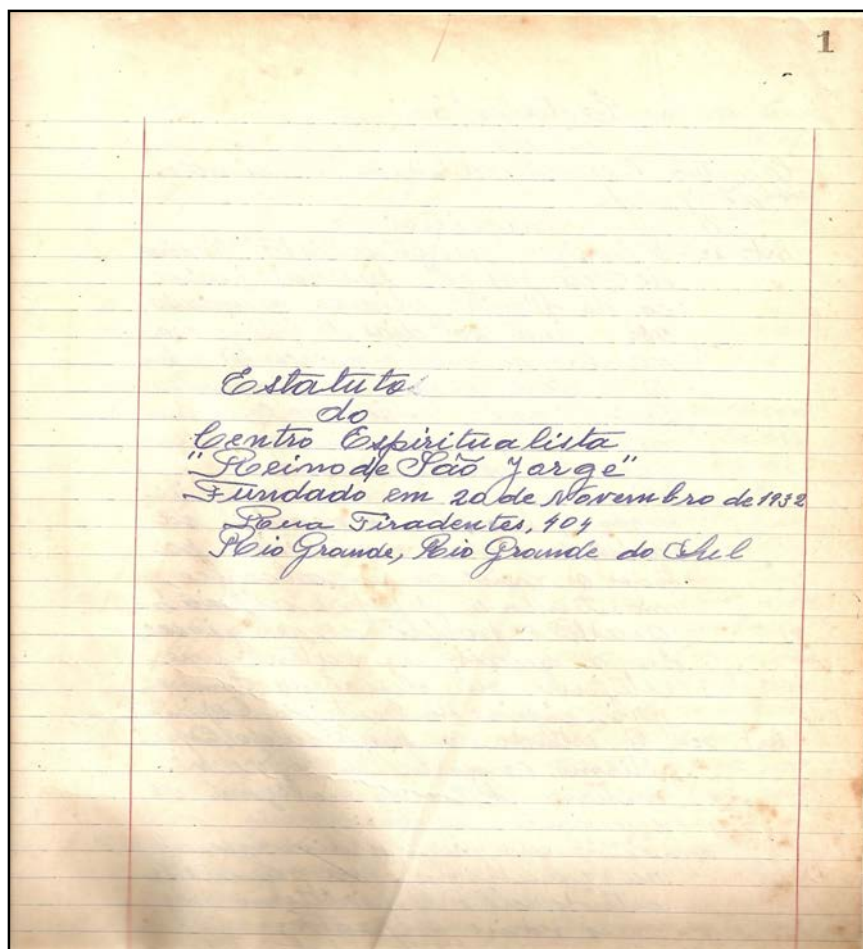 1
Estatuto
do
Centro Espiritualista
"Reino de São Jorge"
Fundado em 20 de Novembro de 1932
Rua Tiradentes, 404
Rio Grande, Rio Grande do Sul